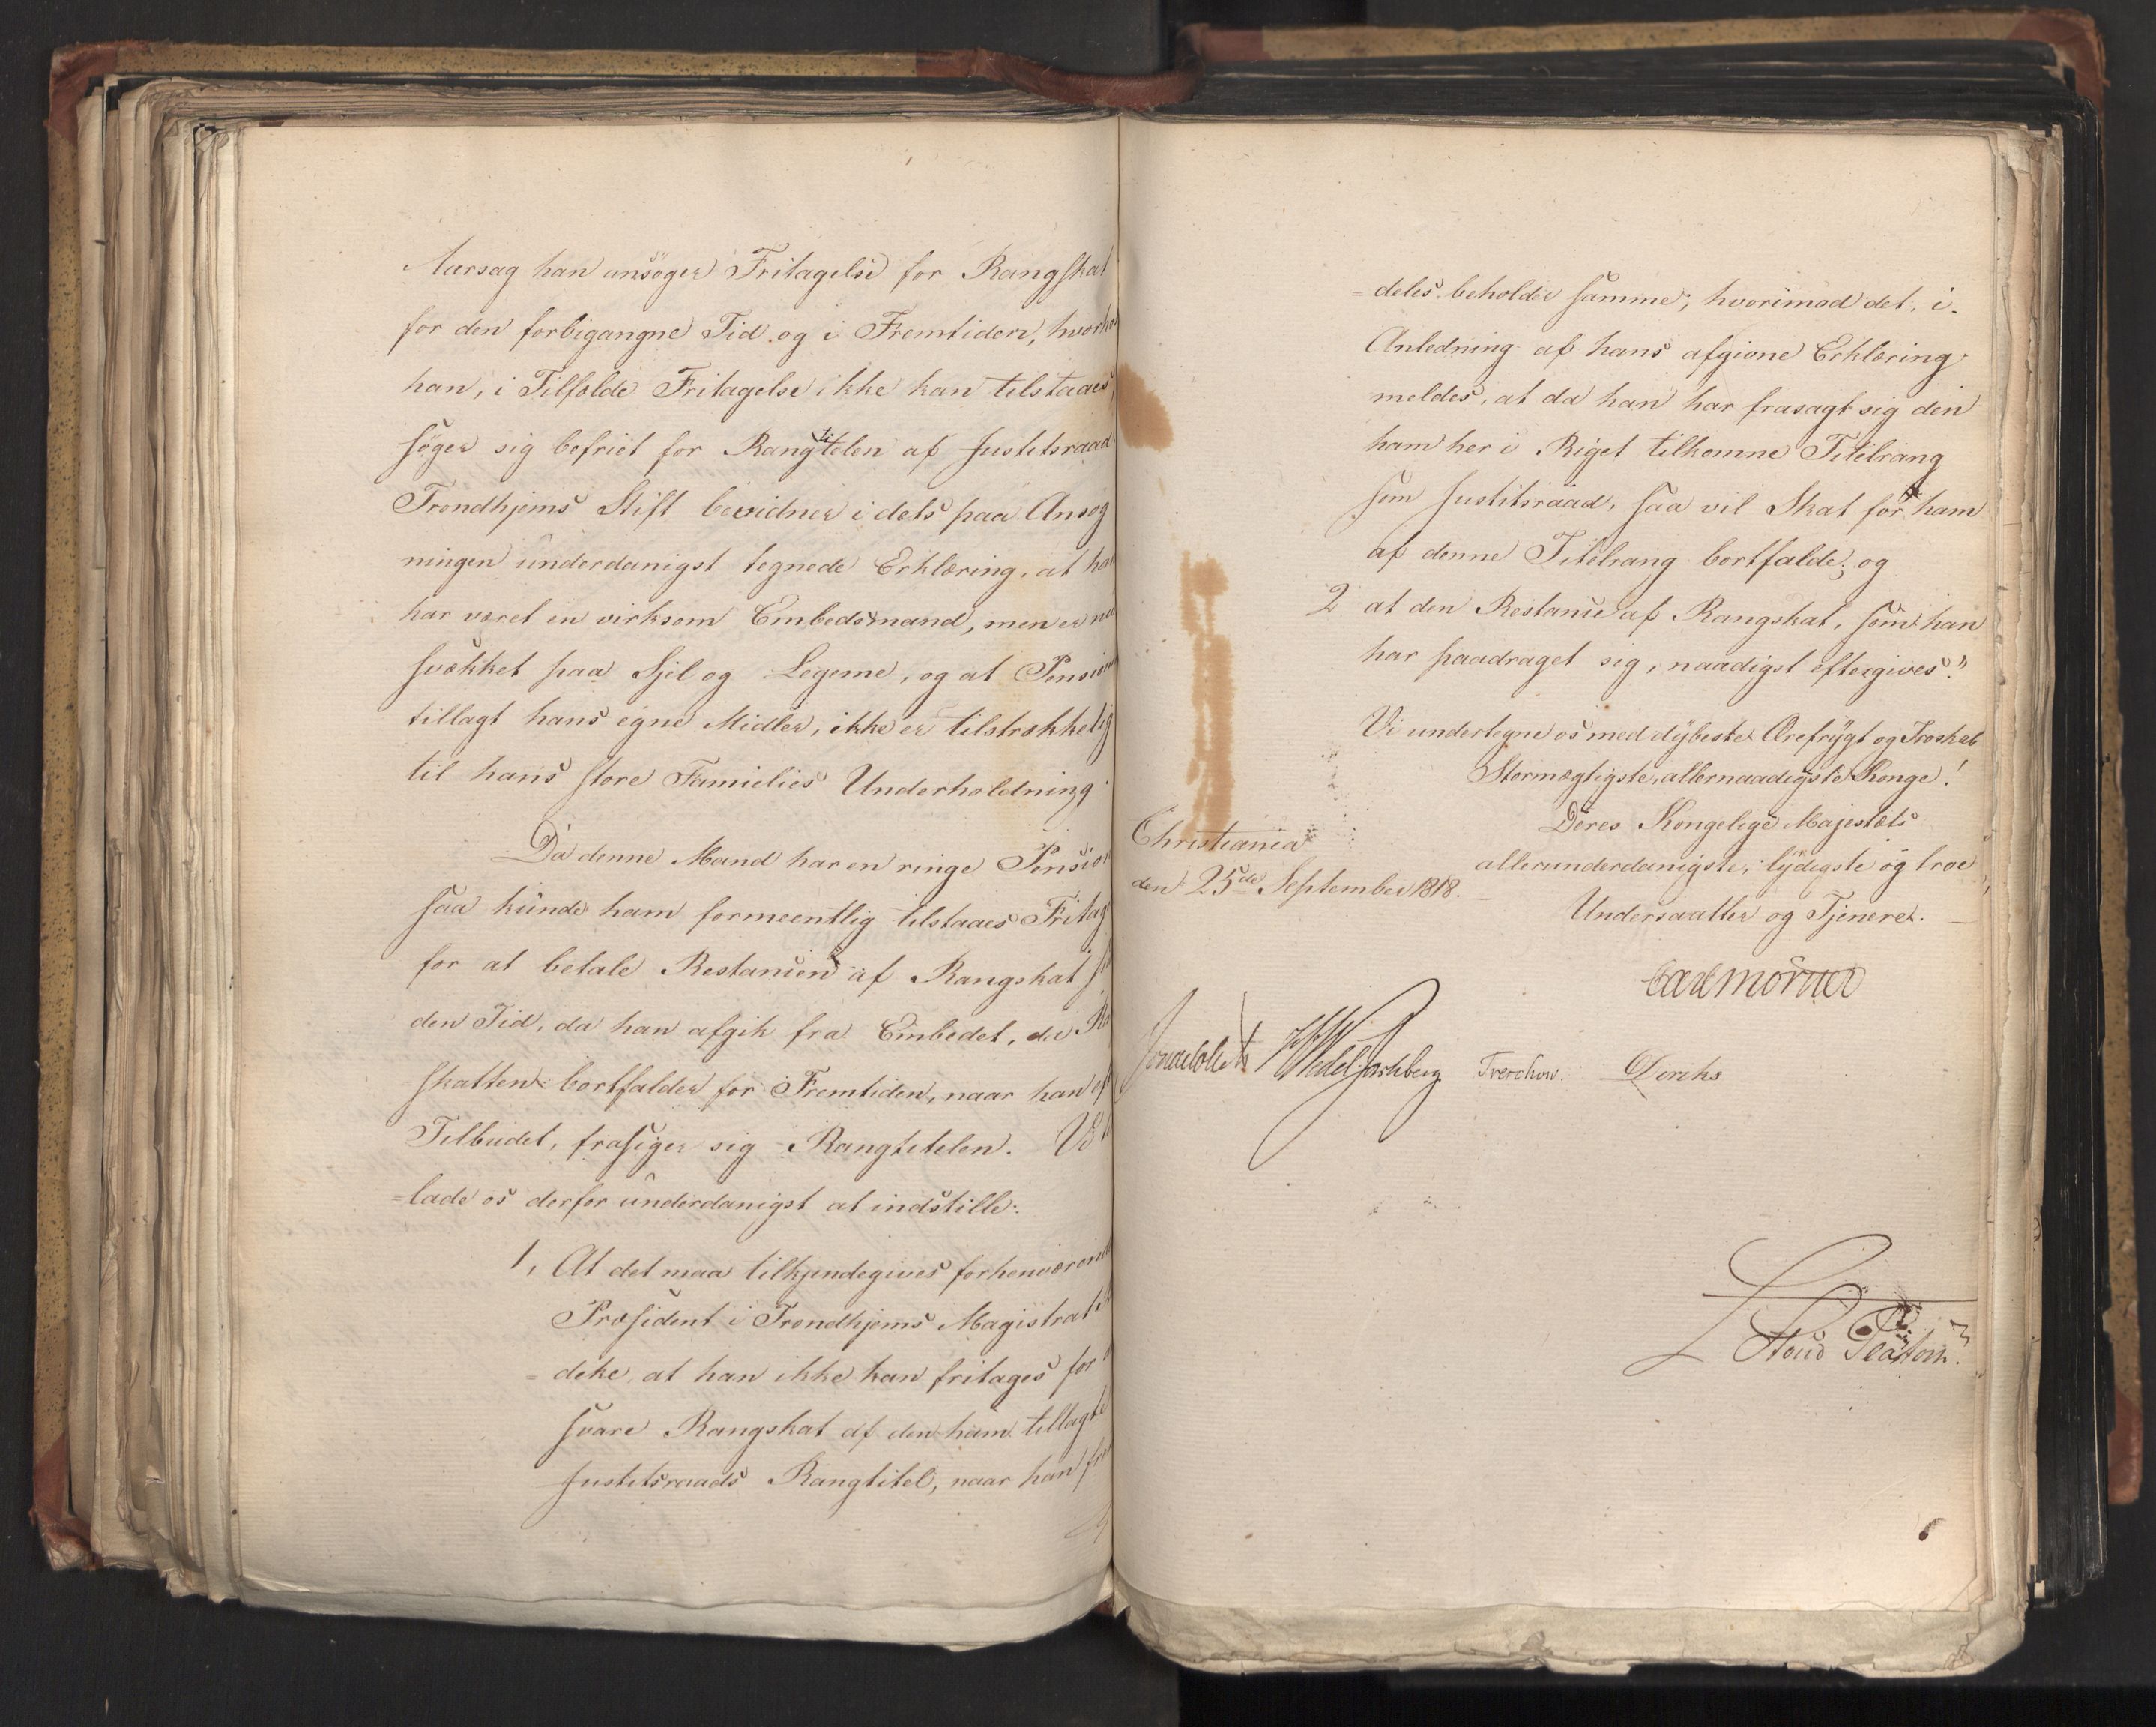 Aarsag han ansøger Fritagelse for Rangskat
for den forbigangne Tid og i Fremtiden, hvorhos
han, i Tilfælde Fritagelse ikke kan tilstaaes,
søger sig befriet for Rangtitelen af Justitsraad.
Trondhjems Stift bevidner i dets paa Ansøg
ningen underdanigst tegnede Erklæring, at han
har været en virksom Embedsmand, men er nu
svækket paa Sjel og Legeme, og at Pensionen
tillagt hans egne Midler, ikke er tilstrækkelig
til hans store Families Underholdning.
Da denne Mand har en ringe Pension
saa kunde ham formeentlig tilstaaes Fritag
for at betale Restancen af Rangskat
den Tid, da han afgik fra Embedet, da
skatten bortfalder for Fremtiden, naar han
Tilbudet, frasiger sig Rangtitelen. Vi
=lade os derfor underdanigst at indstille:
1, At det maa tilkjendegives forhenværende
Præsident i Trondhjems Magistrat
=deke, at han ikke kan fritages for
svare Rangskat af den ham tillagte
Justitsraads Rangtitel, naar han
=deles beholder samme; hvorimod det, i
Anledning af hans afgivne Erklæring
meldes, at da han har frasagt sig den
ham her i Riget tilkomne Titelrang
som Justitsraad, saa vil Skat for ham
af denne Titelrang bortfalde; og
2 at den Restance af Rangskat, som han
har paadraget sig, naadigst eftergives."
Vi undertegne os med dybeste Ærefrygt og Troskab
Stormægtigste, allernaadigste Konge!
Deres Kongelige Majestæts
Christiania
allerunderdanigste, lydigste og troe
den 25de September 1818.
Undersaatter og Tjenere.
Carl Mörner
Jonas Collett HWedel Jarlsberg Treschow. Diriks